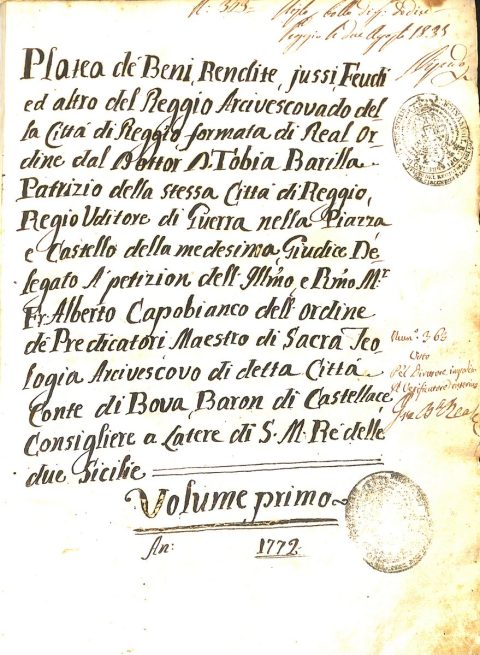 N.º 323.
Platea de Beni, Rendite, jussi, Feudi
ed altro del Reggio Arcivescovado del
la Cittá di Reggio formata di Real Or
dine dal Dottor D. Tobia Barilla
Patrizio della stessa Cittá di Reggio,
Regio Uditore di Guerra nella Piazza
e Castello della medesima, Giudice De
legato A petizion dell' Illmo, e Rmo Mr
Fr Alberto Capobianco dell' ordine
de Predicatori Maestro di Sacra Teo
logia Arcivescovo di detta Cittá
Conte di Bova, Baron di Castellace
Consigliere a Latere di S. M. Ré delle
due Sicilie
Volume primo
An: 1772
Num.º 364
Visto